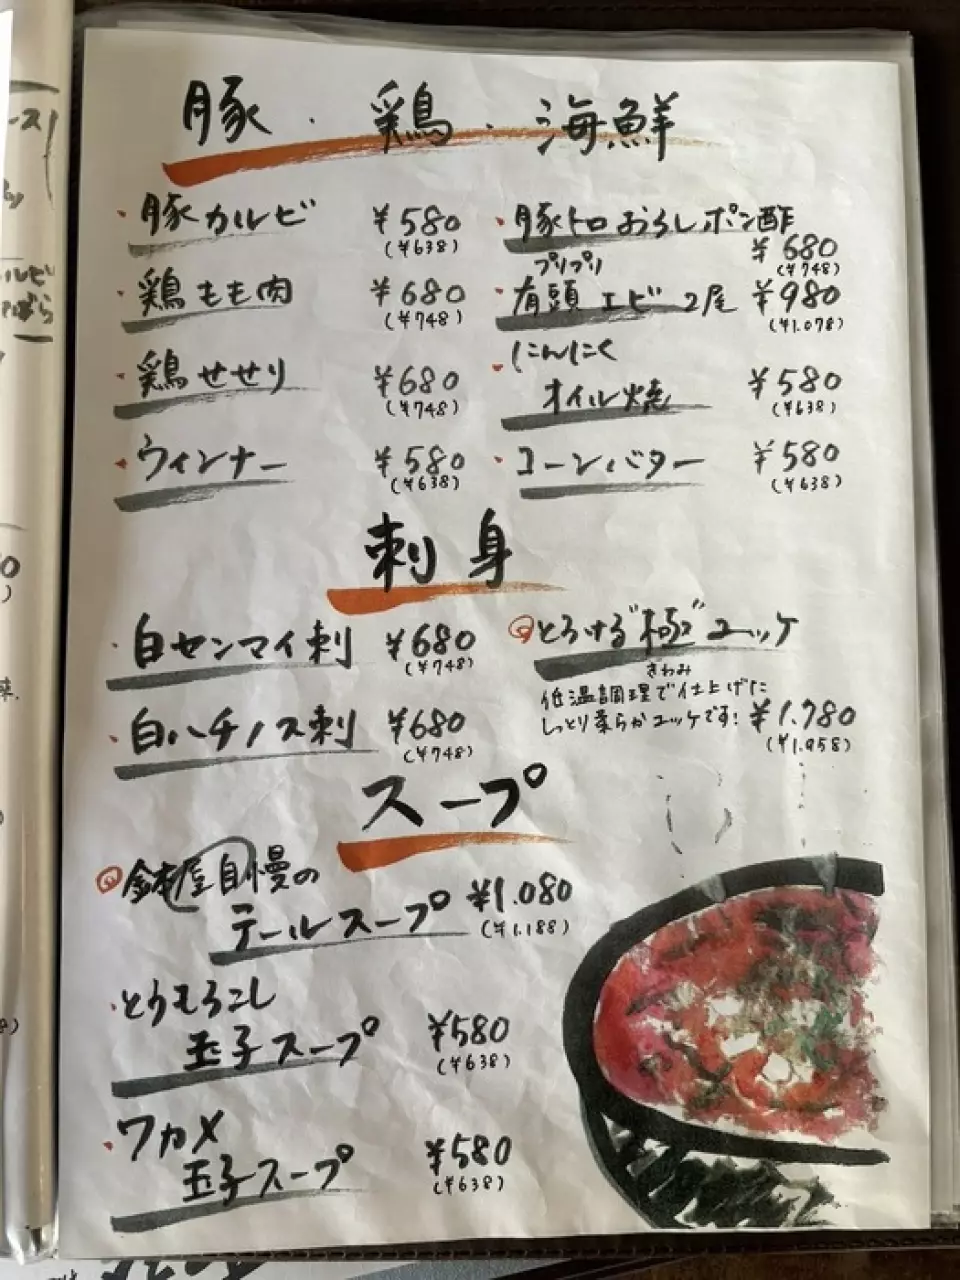 豚・鶏・海鮮
・豚カルビ ¥580
(¥638)
・鶏もも肉 ¥680
(¥748)
・鶏せせり ¥680
(¥748)
・ウィンナー ¥580
(¥638)
・豚トロおろしポン酢
¥680
(¥748)
プリプリ
・有頭エビ2尾 ¥980
(¥1.078)
・にんにく
オイル焼 ¥580
(¥638)
・コーンバター ¥580
(¥638)
刺身
・白センマイ刺 ¥680
(¥748)
・白ハチノス刺 ¥680
(¥748)
とろける"極"ユッケ
きわみ
低温調理で仕上げた
しっとり柔らかユッケです! ¥1.780
(¥1.958)
スープ
屋自慢の
テールスープ ¥1.080
(¥1.188)
・とうもろこし
玉子スープ ¥580
(¥638)
・ワカメ
玉子スープ ¥580
(¥638)